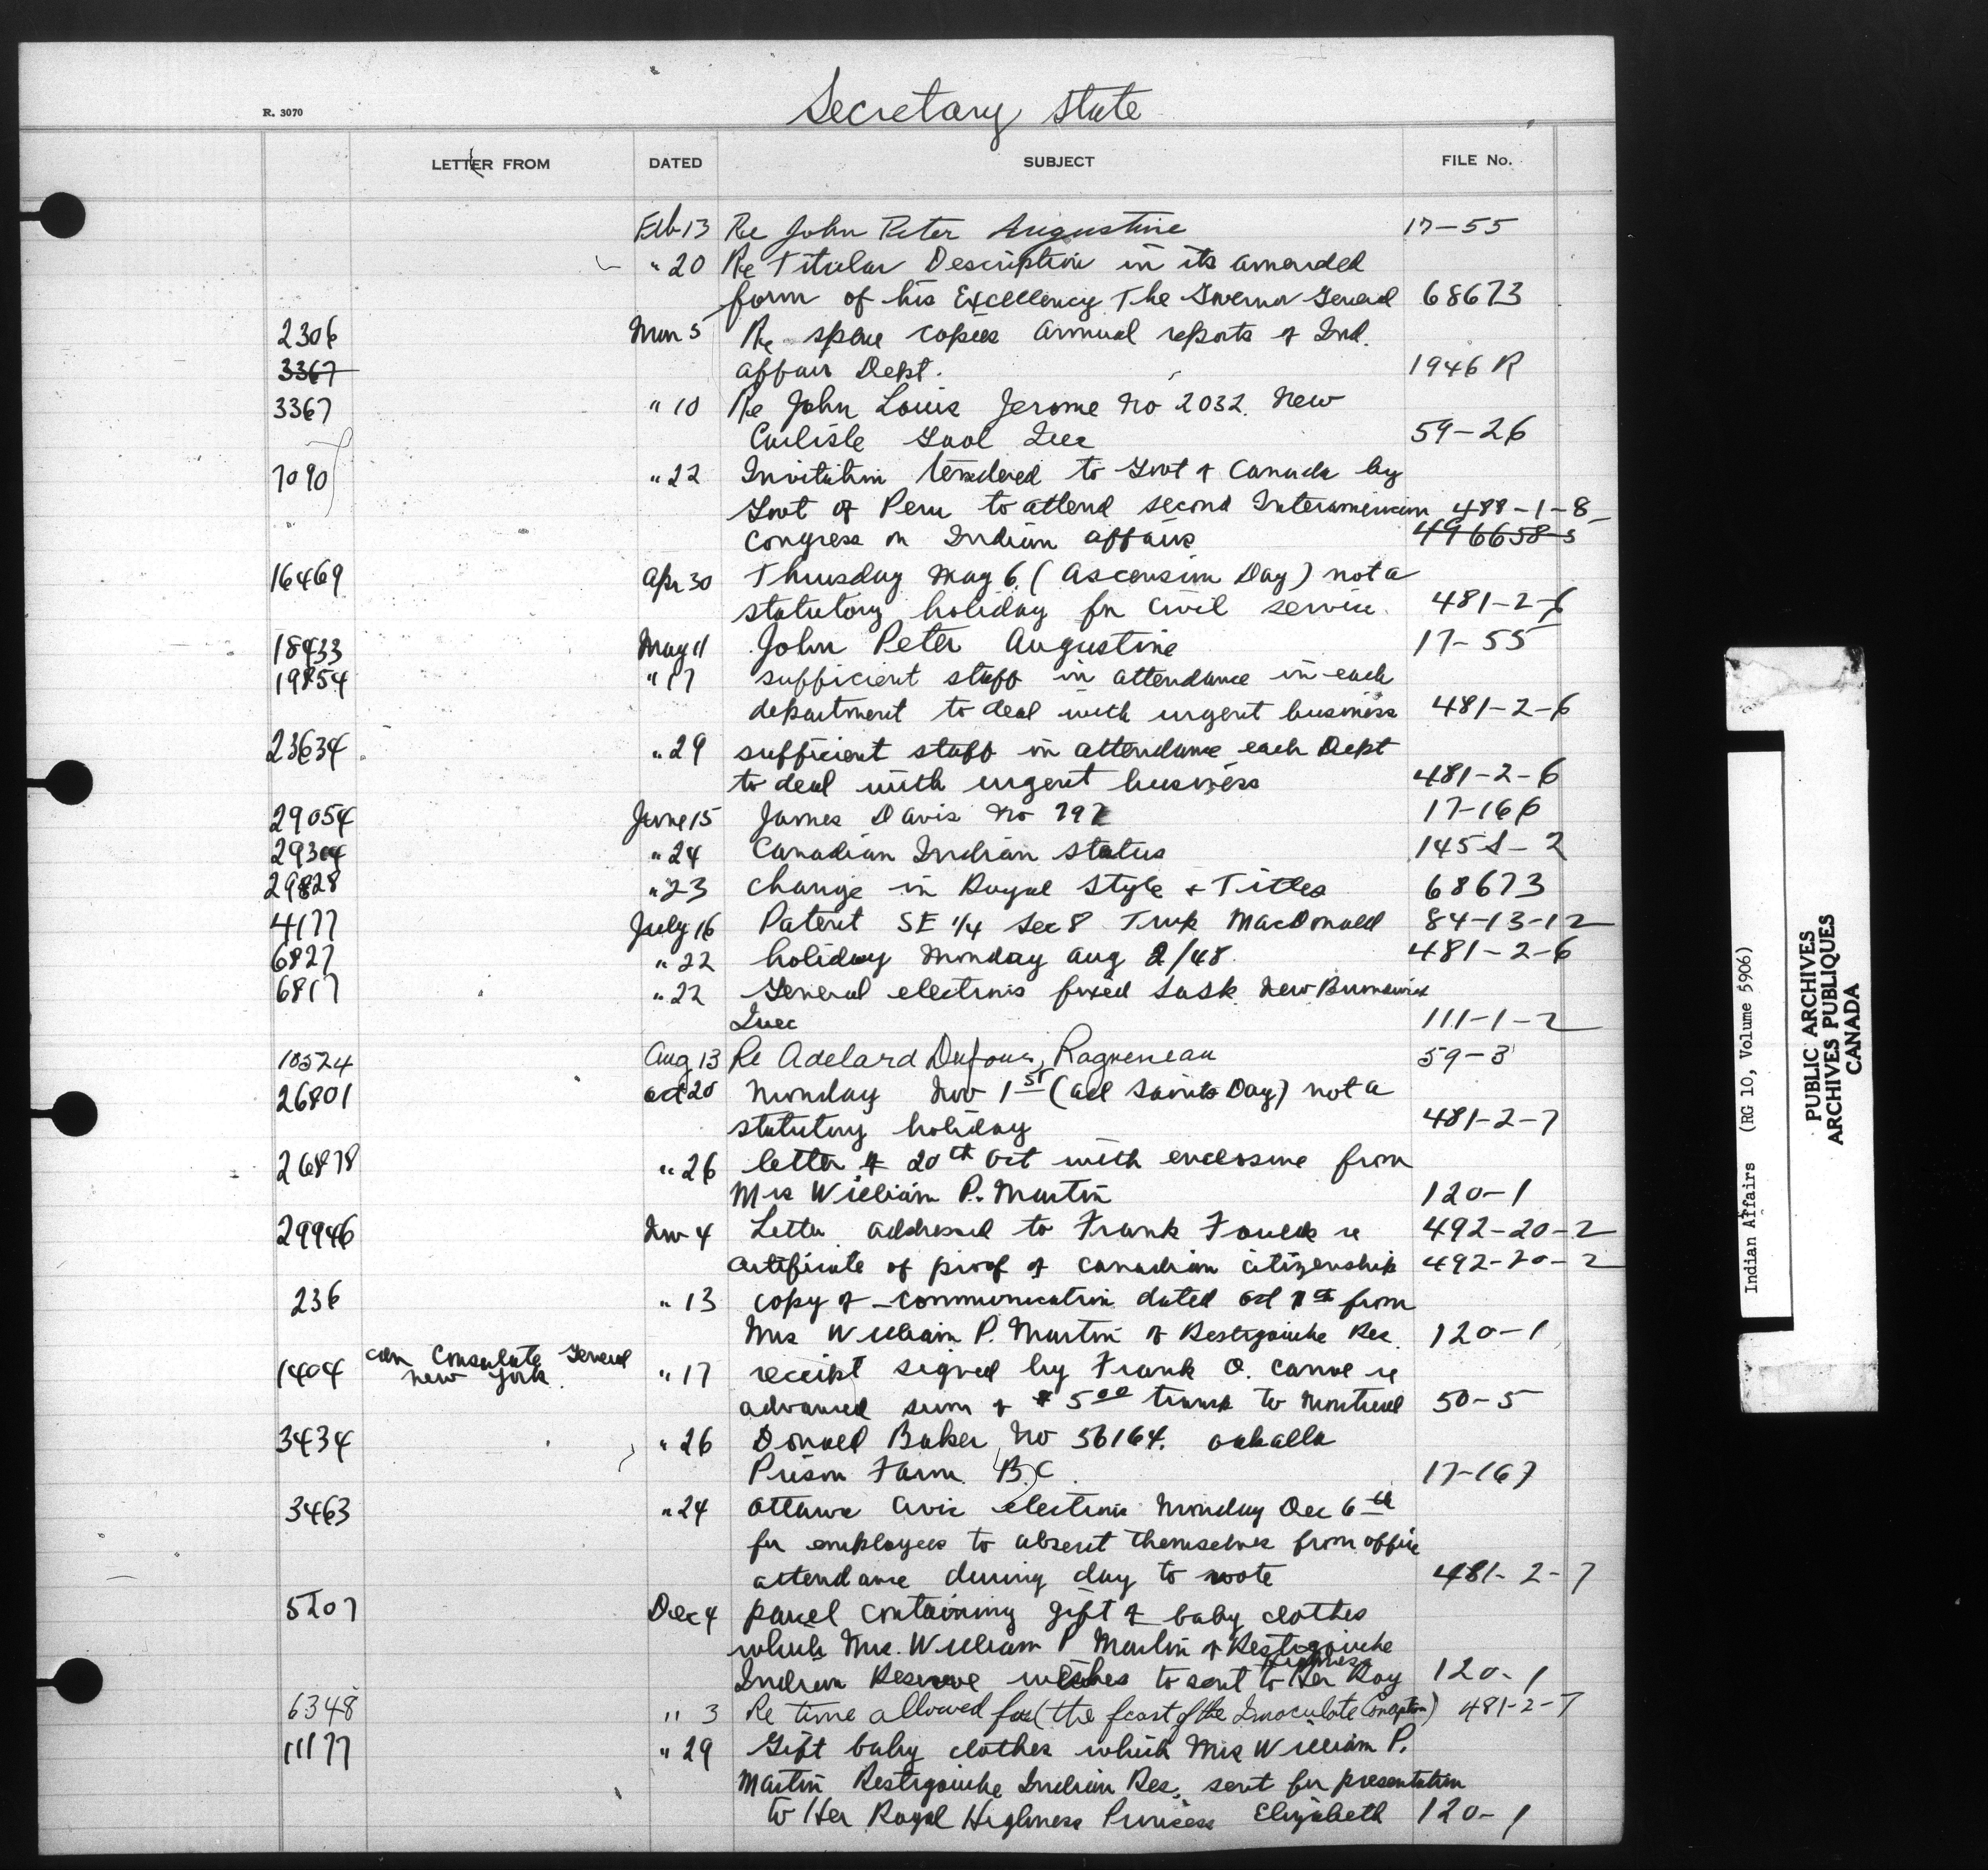 Secretary State
R. 3070
LETTER FROM DATED SUBJECT FILE No.
Feb 13 Re John Peter Augustine 17-55
" 20 Re Titular Description in its amended
form of his Excellency The Governor General 68673
2306 Mar 5 Re spare copies annual reports of Ind.
3367 affairs Dept. 1946 R
3367 " 10 Re John Louis Jerome No 2032. New
Carlisle Gaol Quec 59-26
7090 " 22 Invitation tendered to Govt of Canada by
Govt of Peru to attend second Interamerican 488-1-8
Congress on Indian affairs 496658-5
16469 Apr 30 Thursday May 6. (Ascension Day) not a
statutory holiday for civil service. 481-2-6
18433 May 11 John Peter Augustine 17-55
19854 " 17 sufficient staff in attendance in each
department to deal with urgent business 481-2-6
23634 " 29 sufficient staff in attendance each Dept
to deal with urgent business 481-2-6
29054 June 15 James Davis No 17-166
" 24 Canadian Indian status 145 2
29828 " 23 change in Royal Style + Titles 68673
4177 July 16 Patent SE 1/4 Sec 8 Twp MacDonald 84-13-12
6827 " 22 holiday Monday Aug 2/48. 481-2-6
6817 " 22 General elections fixed Sask. New Brunswick
Quec 111-1-2
10524 Aug 13 Re Adelard Dufour, Ragueneau 59-3
26801 Oct 20 Monday Nov 1st (All Saints Day) not a
statutory holiday 481-2-7
26878 " 26 letter of 20th Oct with enclosure from
Mrs William P. Martin 120-1
29946 Nov 4 Letter addressed to Frank re 492-20-2
certificate of proof of canadian citizenship 492-20-2
236 " 13 copy of communication dated Oct from
Mrs William P. Martin of Restigouche Res. 120-1
can Consulate General
1404 New York. " 17 receipt signed by Frank O. re
advanced sum of $ 5 00 to Montreal 50-5
3434 " 26 Donald Baker, No 56164. Oakalla
Prison Farm B.C. 17-167
3463 " 24 Ottawa Civic elections Monday Dec 6th
for employees to absent themselves from office
attendance during day to vote 481-2-7
5207 Dec 4 parcel containing gift of baby clothes
which Mrs. William P Martin of Restigouche
Highness
Indian Reserve wishes to sent to Her Roy 120-1
6348 " 3 Re time allowed for (the feast of the Imaculate Conception) 481-2-7
11177 " 29 Gift baby clothes which Mrs William P.
Martin Restigouche Indian Res. sent for presentation
to Her Royal Highness Princess Elizabeth 120-1
Indian Affairs (RG 10, Volume 5906)
PUBLIC ARCHIVES
ARCHIVES PUBLIQUES
CANADA